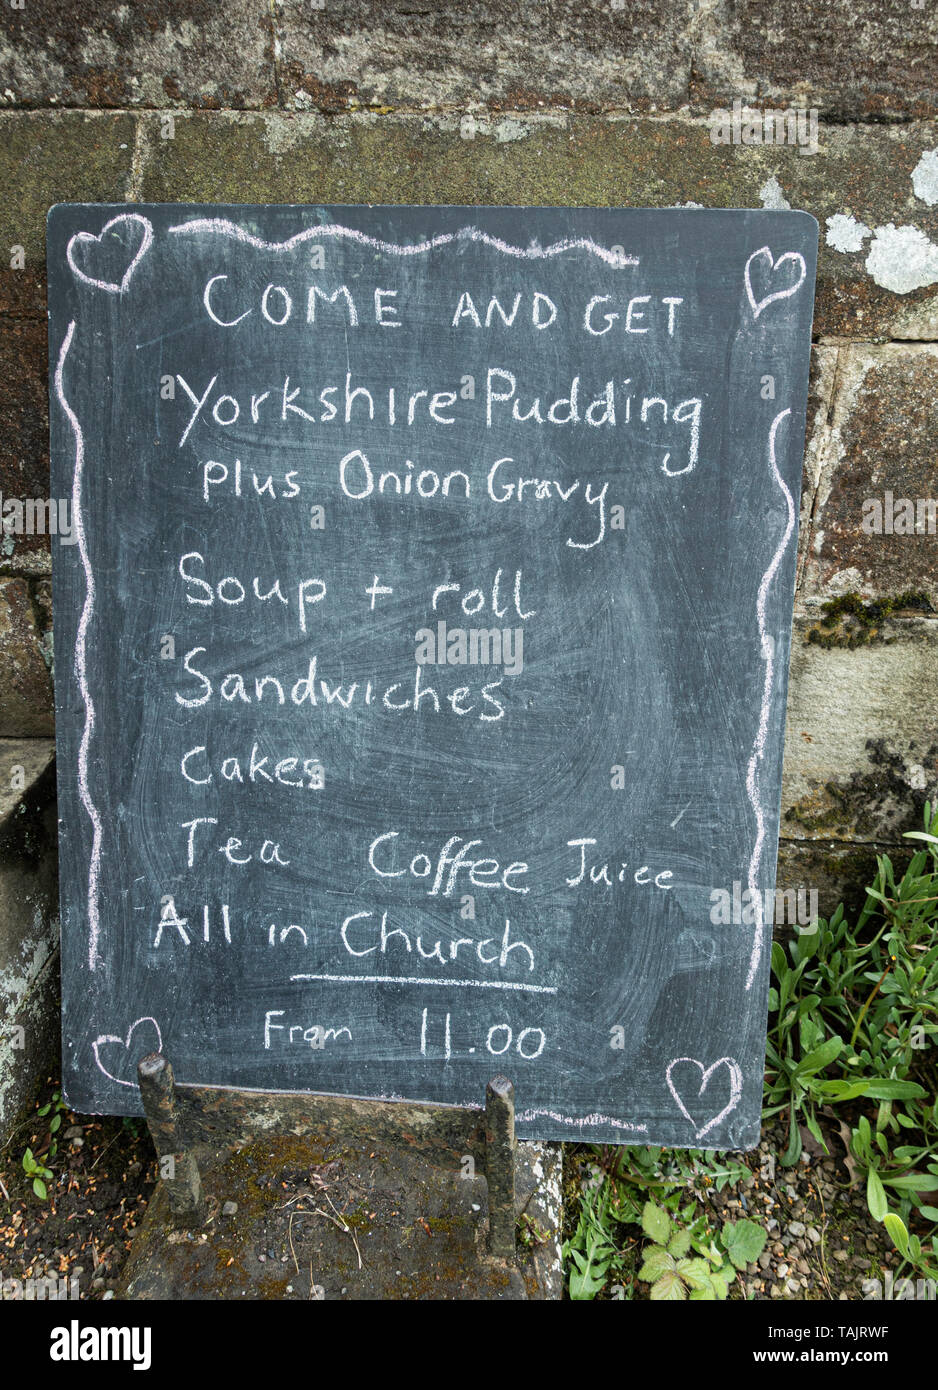 COME AND GET
Yorkshire Pudding
plus Onion Gravy
Soup + roll
Sandwiches
Cakes
Tea Coffee Juice
All in Church
From 11.00
alamy
Image ID: TAJRWF
www.alamy.com